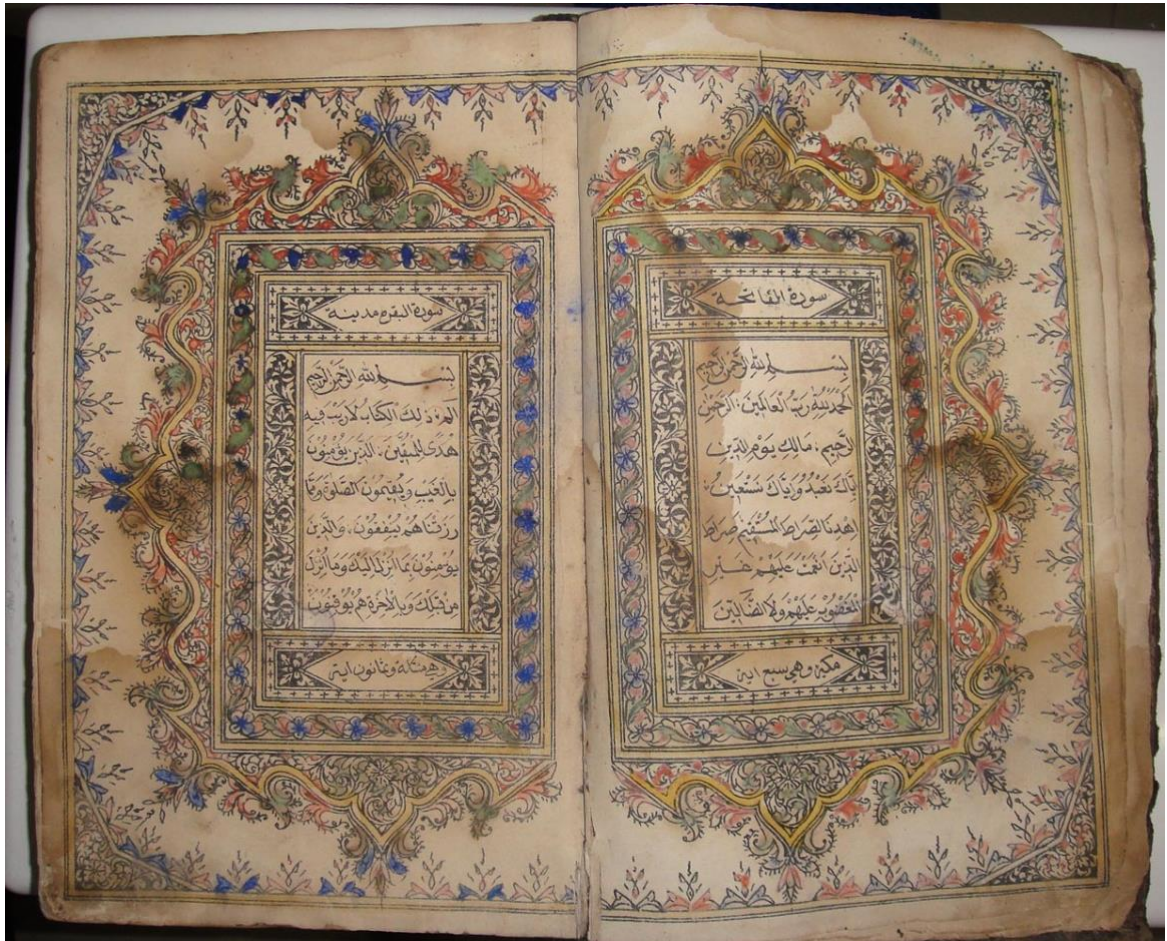 سورة الفاتحة
بسم الله الرحمن الرحيم
الحمد لله رب العالمين الرحمن
الرحيم مالك يوم الدين
ياك نعبد وياك نستعين
اهدنا الصراط المستقيم صراط
الذين انعمت عليهم غير
المغضوب عليهم ولا الضالين
مكية وهي سبع اية
سورة البقرة مدينه
بسم الله الرحمن الرحيم
الم ذلك الكتاب لا ريب فيه
هدى للمتقين الذين يؤمنون
بالغيب ويقيمون الصلوة ومما
رزقناهم ينفقون والذين
يؤمنون بما انزل اليك وما انزل
من قبلك وبالاخرة هم يوقنون
وثمانون اية